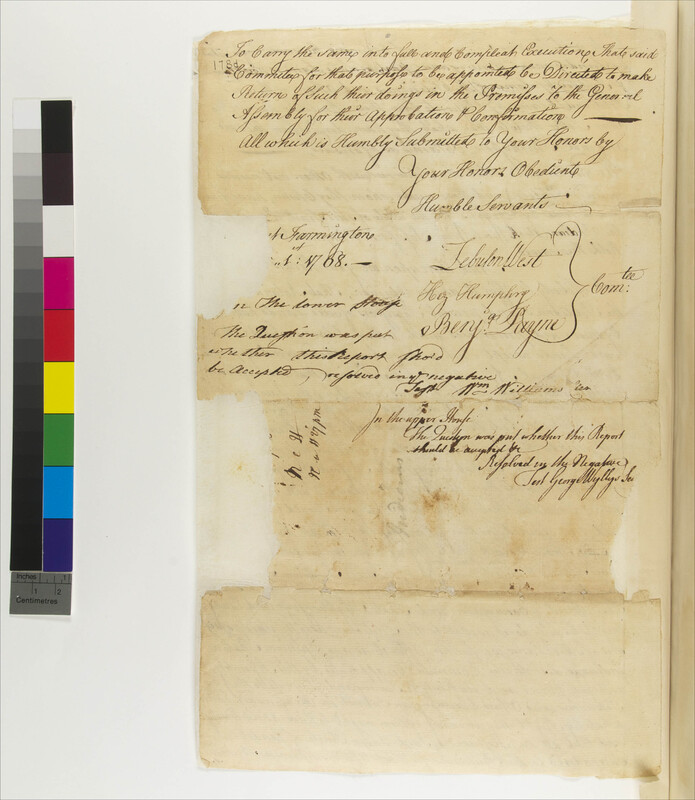 To Carry the same into full and Compleat Execution, That said
1768
Committee for that purpose to be appointed be Directed to make
Return of Such their doings in the Premisses to the General
Assembly for their Approbation & Confirmation
All which is Humbly Submitted to Your Honors by
Your Honors Obedient
Humble Servants
Farmington
1768.
Zebulon West
Hez Humphry
Benjn Payne
Comtee
in The Lower House
The Question was put
whether this Report Shod
be accepted, resolved in ye negative
Test Wm Williams
In the upper House
The Question was put whether this Report
should be accepted &c
Resolved in the Negative
Test George Wyllys Sec
Indians
Inches 1
1 2
Centimetres